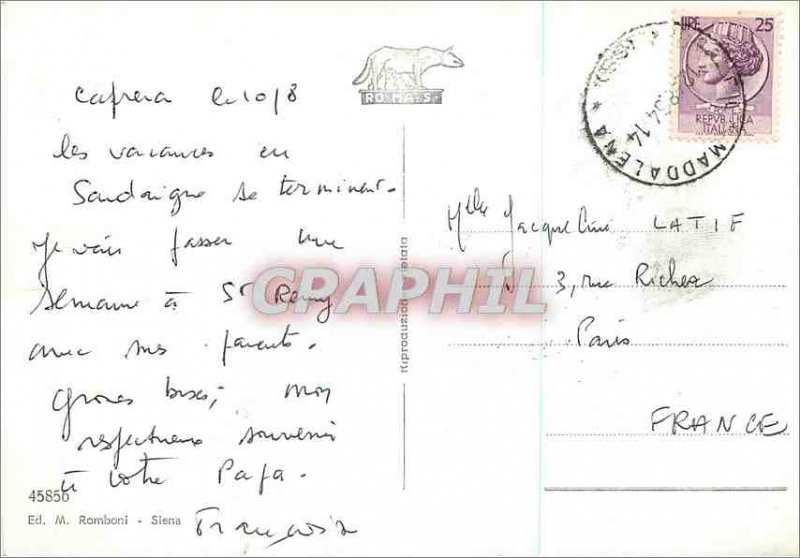 ROMA-S-
LIRE 25
REPVBBLICA
ITALIANA
MADDALENA
14
Caprera le 10/8
les vacances en
Sardaigne se terminent.
Je vais passer une
semaine à St Remy
avec mes parents.
Grosses bises, mon
respectueux souvenir
à votre Papa.
Françoise
Mlle Jacqueline LATIF
3, rue Richer
Paris
FRANCE
riproduzione vietata
CPAPHIL
45856
Ed. M. Romboni - Siena